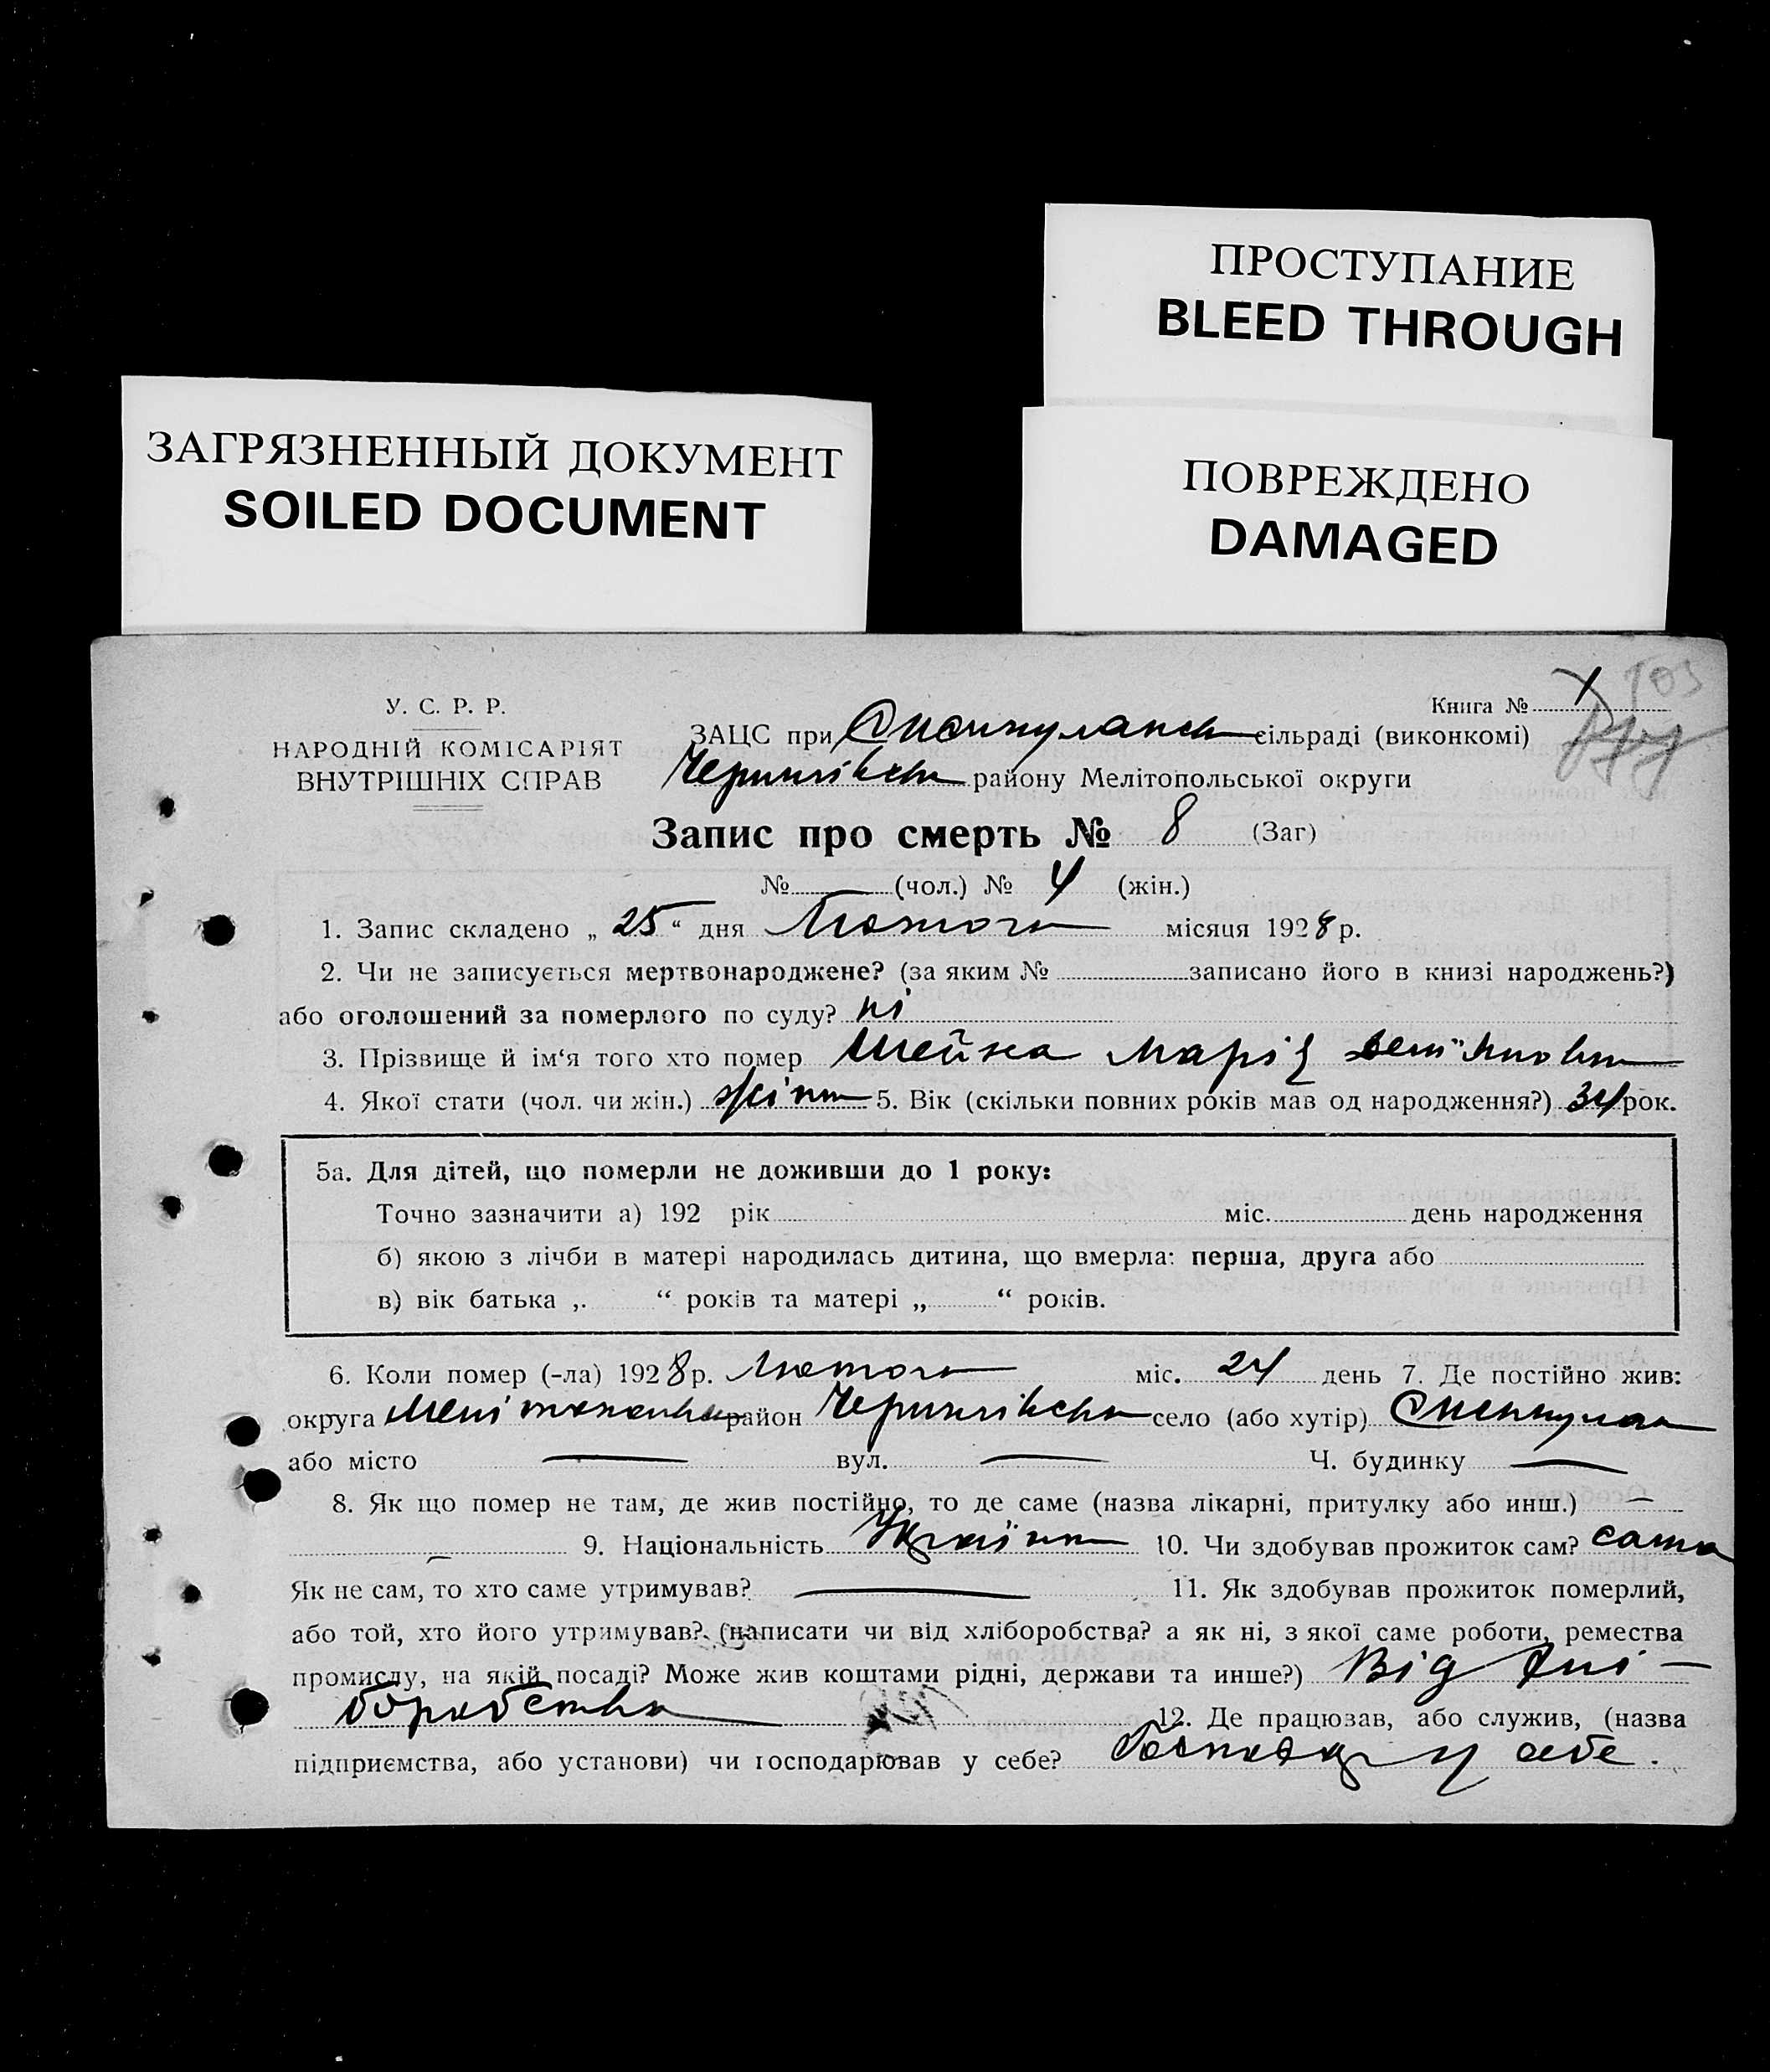 ПРОСТУПАНИЕ
BLEED THROUGH
ЗАГРЯЗНЕННЫЙ ДОКУМЕНТ
SOILED DOCUMENT
ПОВРЕЖДЕНО
DAMAGED
У. С. Р. Р.
НАРОДНІЙ КОМІСАРІЯТ
ВНУТРІШНІХ СПРАВ
Книга № 1
ЗАЦС при сільраді (виконкомі)
району Мелітопольської округи
Запис про смерть № 8 (Заг)
№ — (чол.) № 4 (жін.)
1. Запис складено „ 25 “ дня Лютого місяця 1928 р.
2. Чи не записується мертвонароджене? (за яким № записано його в книзі народжень?)
або оголошений за померлого по суду? ні
3. Прізвище й ім'я того хто помер Шейка Марія
4. Якої стати (чол. чи жін.) жіноч 5. Вік (скільки повних років мав од народження?) 34 рок.
5а. Для дітей, що померли не доживши до 1 року:
Точно зазначити а) 192 рік міс. день народження
б) якою з лічби в матері народилась дитина, що вмерла: перша, друга або
в) вік батька „ “ років та матері „ “ років.
6. Коли помер (-ла) 1928 р. Лютого міс. 24 день 7. Де постійно жив:
округа район село (або хутір)
або місто — вул. — Ч. будинку —
8. Як що помер не там, де жив постійно, то де саме (назва лікарні, притулку або инш.) —
— 9. Національність Україн 10. Чи здобував прожиток сам? сама
Як не сам, то хто саме утримував? — 11. Як здобував прожиток померлий,
або той, хто його утримував? (написати чи від хліборобства? а як ні, з якої саме роботи, ремества
промислу, на якій посаді? Може жив коштами рідні, держави та инше?) Від хлі-
боробства 12. Де працював, або служив, (назва
підприємства, або установи) чи господарював у себе? у себе.